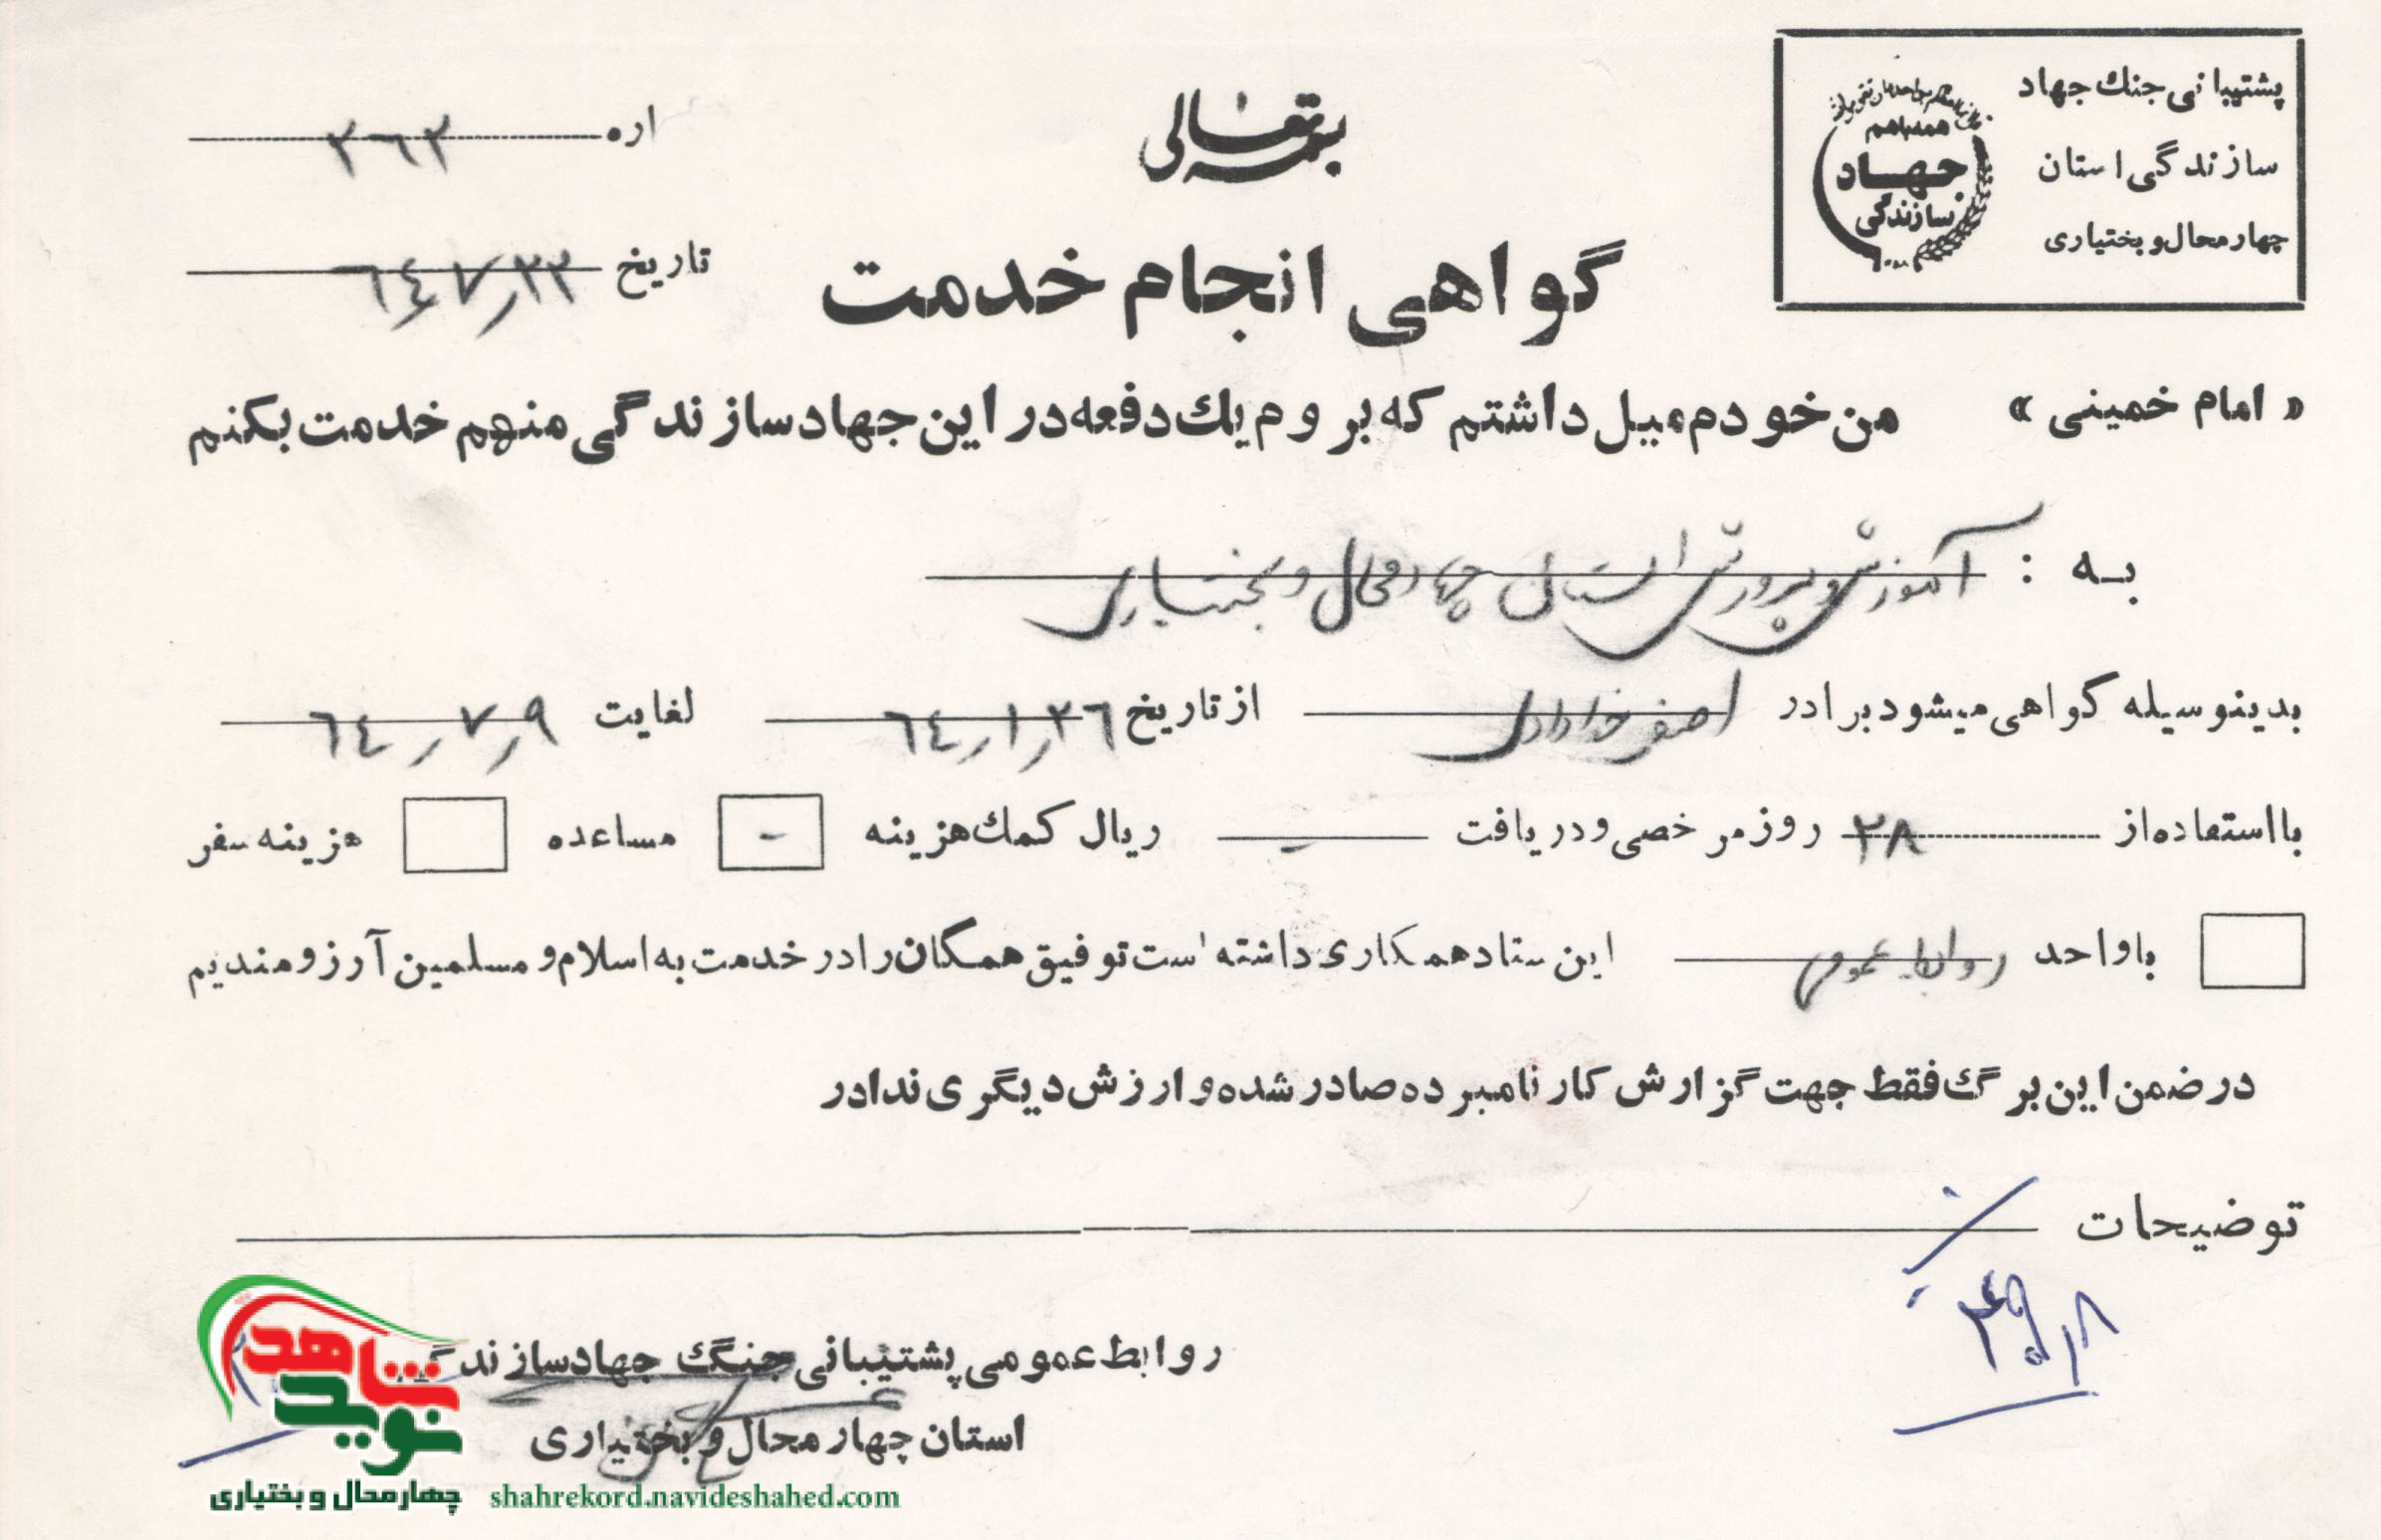 پشتیبانی جنك جهاد
سازندگی استان
چهارمحال و بختیاری
همه باهم
جهاد
سازندگی
بسمه تعالی
اره ۲۶۲
تاریخ ۶۴٫۷٫۲۲
گواهی انجام خدمت
«امام خمینی» من خودم میل داشتم که بروم یك دفعه در این جهاد سازندگی منهم خدمت بکنم
به : آموزش و پرورش استان چهارمحال و بختیاری
بدینوسیله گواهی میشود برادر اصغر خدادادی از تاریخ ۶۴٫۱٫۲۶ لغایت ۶۴٫۷٫۹
بااستفاده از ۲۸ روز مرخصی و دریافت - ریال کمك هزینه - مساعده هزینه سفر
با واحد روابط عمومی این ستاد همکاری داشته است توفیق همگان را در خدمت به اسلام و مسلمین آرزومندیم
در ضمن این برگ فقط جهت گزارش کار نامبرده صادر شده و ارزش دیگری ندادر
توضیحات
روابط عمومی پشتیبانی جنگ جهاد سازند
استان چهارمحال و بختیاری
نوید شاهد
چهارمحال و بختیاری
shahrekord.navideshahed.com